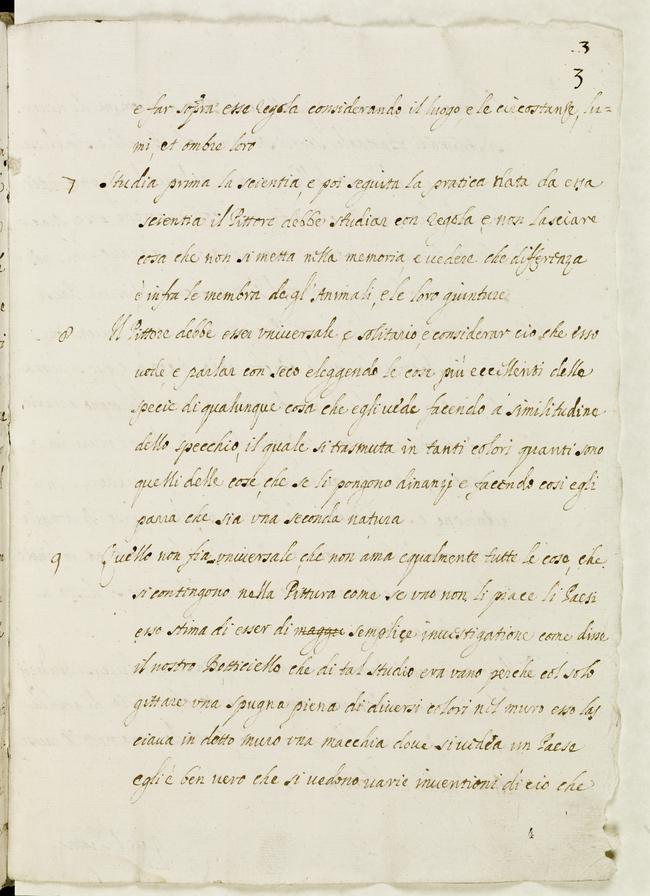 3
3
e far sopra esse regola considerando il luogo, e le circostanze, lu=
mi, et ombre loro
7 Studia prima la scientia, e poi seguita la pratica nata da essa
scientia il Pittore debbe studiar con regola, e non lasciare
cosa che non si metta nella memoria, e vedere che differenza
è infra le membra de gl'Animali, e le loro giunture
8 Il Pittore debbe esser vniversale, e solitario, e considerar cio, che esso
vede e parlar con seco eleggendo le cose più eccellenti delle
specie di qualunque cosa che egli vede facendo à similitudine
dello specchio, il quale si trasmuta in tanti colori quanti sono
quelli delle cose, che se li pongono dinanzi e, facendo cosi egli
parra che sia vna seconda natura
9 Quello non fia vniversale, che non ama equalmente tutte le cose, che
si contingono nella Pittura come se vno non li piace li Paesi
esso stima di esser di magge semplice investigatione come disse
il nostro Botticiello che di tal studio era vano perche col solo
gittare vna spugna piena di diversi colori nel muro esso las
ciava in detto muro vna macchia dove si vedea un Paese
egli è ben vero che si vedono varie inventioni di cio che
4